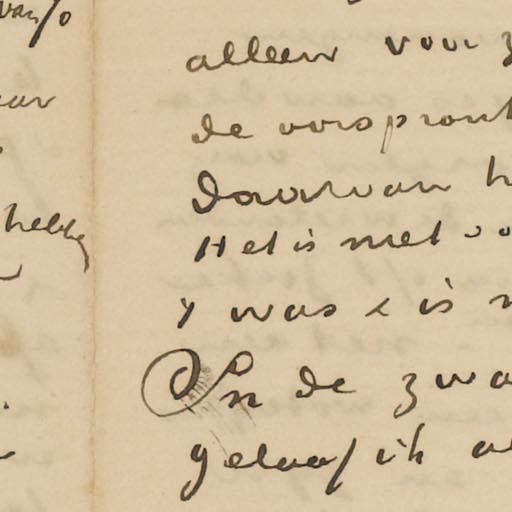 hebben
alleen voor
de oorspron
Daarvan
Het is met
y was & is
In de zwa
geloof ik